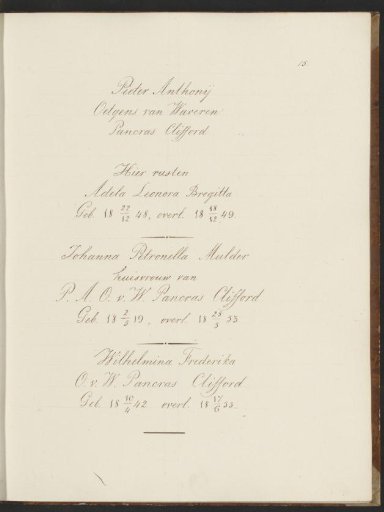 15
Pieter Anthonij
Oetgens van Waveren
Pancras Clifford
Hier rusten
Adela Leonora Bregitta
Geb. 18 27/12 48, overl. 18 18/12 49.
Johanna Petronella Mulder
huisvrouw van
P. A. O. v. W. Pancras Clifford
Geb. 18 2/5 19, overl. 18 25/5 55
Wilhelmina Frederika
O. v. W. Pancras Clifford
Geb. 18 10/4 42 overl. 18 17/6 55.